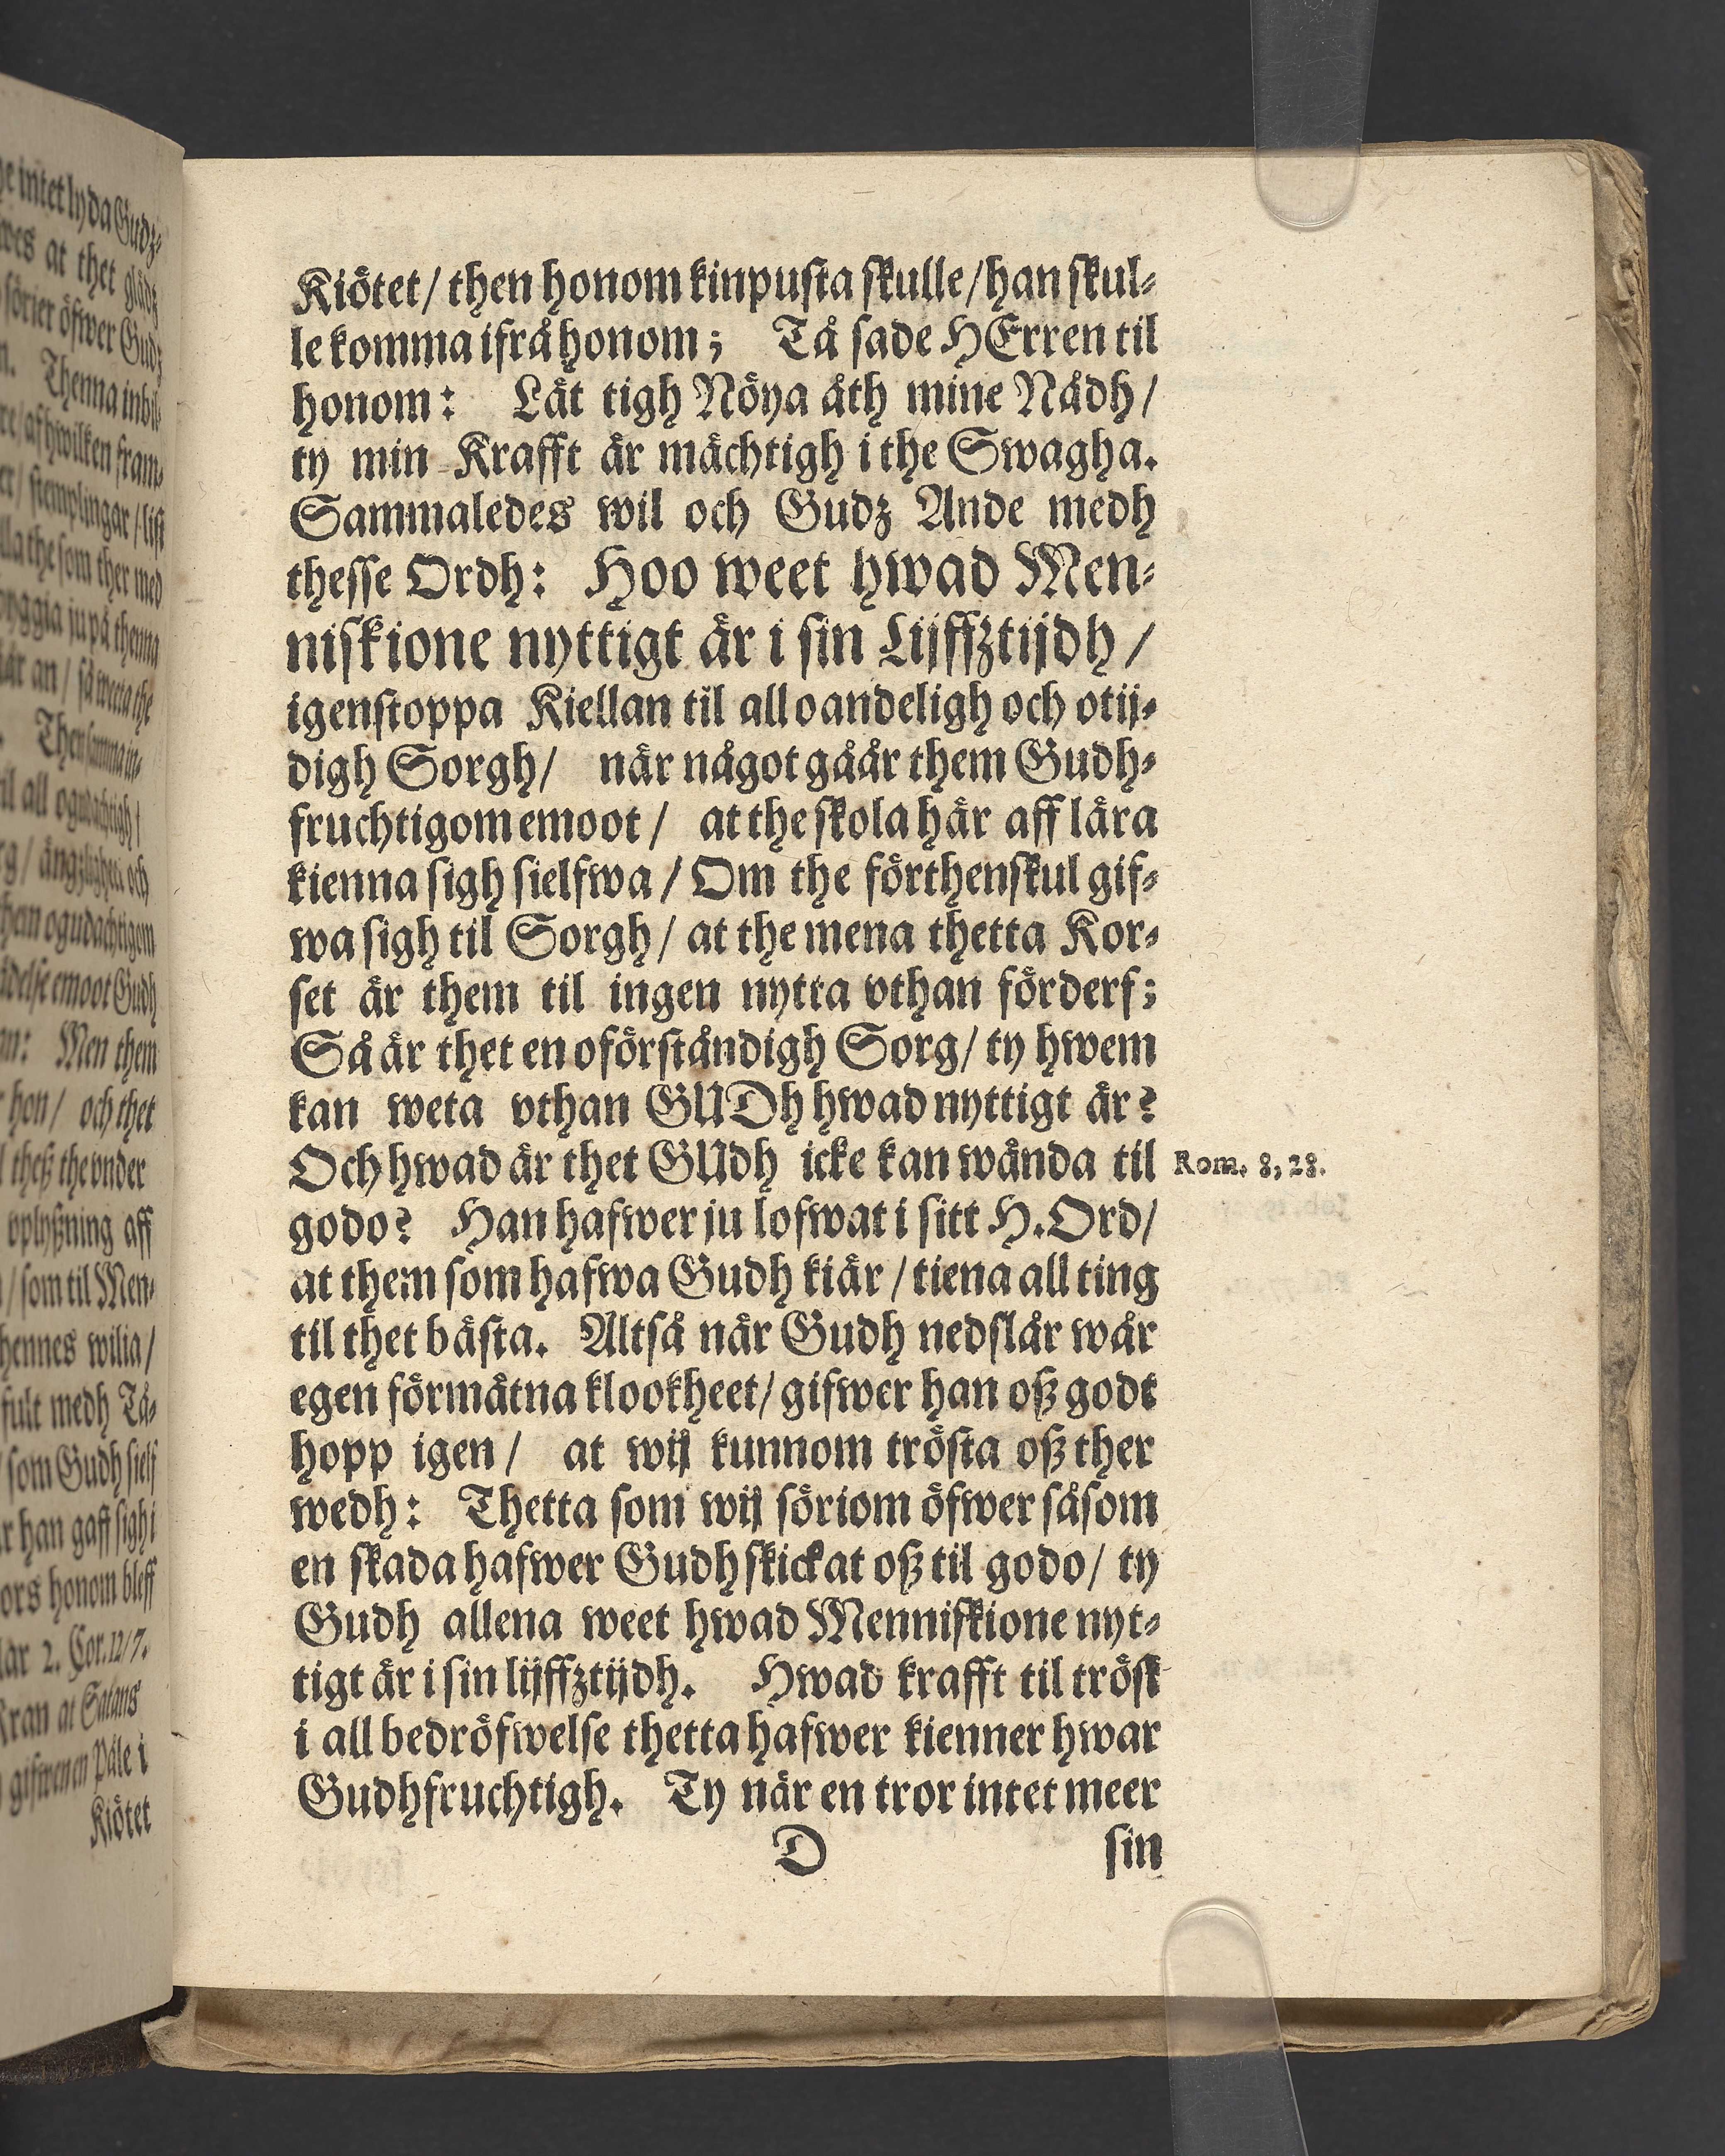 Kiötet/ then honom kinpusta skulle/ han skul-
le komma ifrå honom; Tå sade HErren til
honom: Låt tigh Nöya åth mine Nådh/
ty min Krafft är mächtigh i the Swagha.
Sammaledes wil och Gudz Ande medh
thesse Ordh: Hoo weet hwad Men-
niskione nyttigt är i sin Lijffztijdh/
igenstoppa Kiellan til all oandeligh och otij-
digh Sorgh/ när något gåår them Gudh-
fruchtigom emoot/ at the skola här aff lära
kienna sigh sielfwa/ Om the förthenskul gif-
wa sigh til Sorgh/ at the mena thetta Kor-
set är them til ingen nytta vthan förderf;
Så är thet en oförståndigh Sorg/ ty hwem
kan weta vthan GUDh hwad nyttigt är?
Och hwad är thet GUdh icke kan wända til
Rom. 8, 28.
godo? Han hafwer ju lofwat i sitt H. Ord/
at them som hafwa Gudh kiär/ tiena all ting
til thet bästa. Altså när Gudh nedslår wår
egen förmätna klookheet/ gifwer han oß godt
hopp igen/ at wij kunnom trösta oß ther
wedh: Thetta som wij söriom öfwer såsom
en skada hafwer Gudh skickat oß til godo/ ty
Gudh allena weet hwad Menniskione nyt-
tigt är i sin lijffztijdh. Hwad krafft til tröst
i all bedröfwelse thetta hafwer kienner hwar
Gudhfruchtigh. Ty när en tror intet meer
D sin